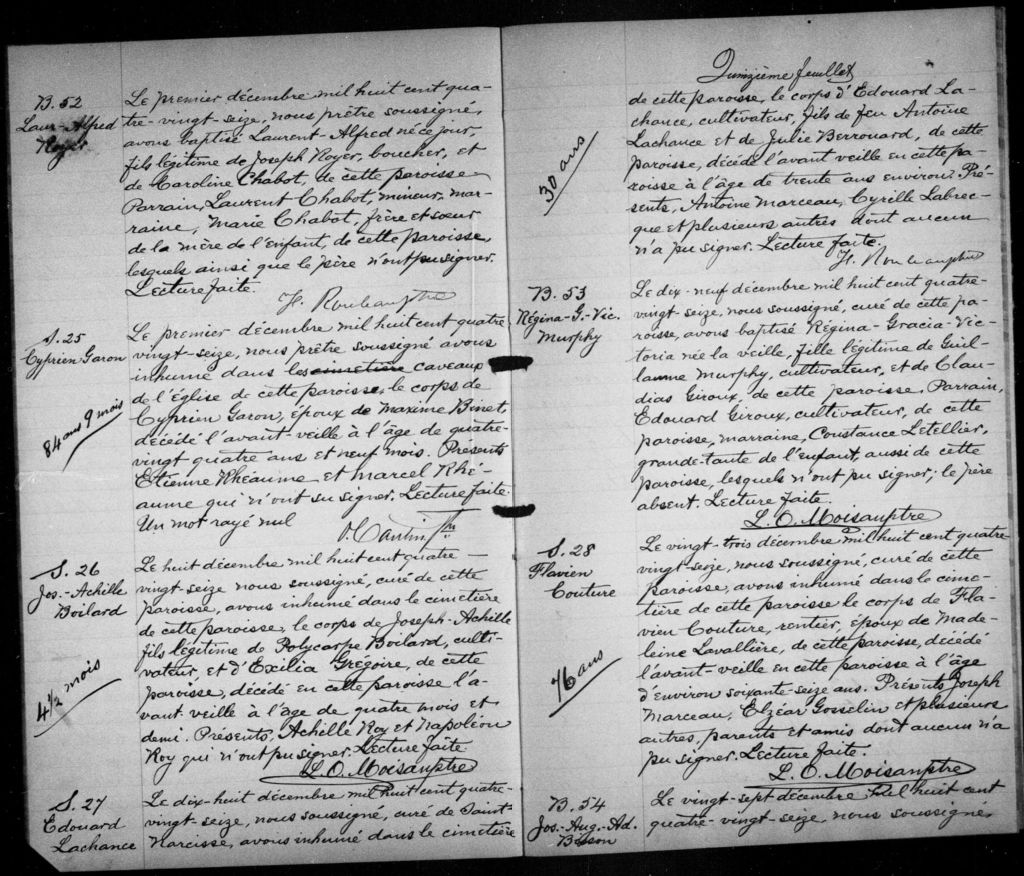 B. 52
Laur-Alfred
Royer
Le premier décembre mil huit cent qua-
tre-vingt-seize, nous prêtre soussigné,
avons baptisé Laurent-Alfred né ce jour,
fils légitime de Joseph Royer, boucher, et
de Caroline Chabot, de cette paroisse
Parrain, Laurent Chabot, mineur, mar-
raine, Marie Chabot, frère et soeur
de la mère de l'enfant, de cette paroisse,
lesquels ainsi que le père n'ont pu signer.
Lecture faite.
Rouleau ptre
S. 25
Cyprien Garon
84 ans 9 mois
Le premier décembre mil huit cent quatre
vingt-seize, nous prêtre soussigné avons
inhumé dans les cimetière caveaux
de l'église de cette paroisse, le corps de
Cyprien Garon, époux de Maxime Binet,
décédé l'avant-veille à l'âge de quatre-
vingt quatre ans et neuf mois. Présents
Etienne Rhéaume et Marcel Rhé-
aume qui n'ont su signer. Lecture faite.
Un mot rayé nul
S. 26
Jos.-Achille
Boilard
4 1/2 mois
Le huit décembre mil huit cent quatre-
vingt-seize nous soussigné, curé de cette
paroisse, avons inhumé dans le cimetière
de cette paroisse, le corps de Joseph-Achille
fils légitime de Polycarpe Boilard, culti-
vateur, et d'Exilia Grégoire, de cette
paroisse, décédé en cette paroisse l'a-
vant-veille à l'âge de quatre mois et
demi. Présents, Achille Roy et Napoléon
Roy qui n'ont pu signer. Lecture faite
L. O. Moisan ptre
S. 27
Edouard
Lachance
Le dix-huit décembre mil huit cent quatre-
vingt-seize, nous soussigné, curé de Saint-
Narcisse, avons inhumé dans le cimetière
Quinzième feuillet
30 ans
de cette paroisse, le corps d'Edouard La-
chance, cultivateur, fils de feu Antoine
Lachance et de Julie Berrouard, de cette
paroisse, décédé l'avant veille en cette pa-
roisse à l'âge de trente ans environ. Pré-
sents, Antoine Marceau, Cyrille Labrec-
que et plusieurs autres dont aucun
n'a pu signer. Lecture faite.
Rouleau ptre
B. 53
Régina-G.-Vic.
Murphy
Le dix-neuf décembre mil huit cent quatre-
vingt-seize, nous soussigné, curé de cette pa-
roisse, avons baptisé Régina-Gracia-Vic-
toria née la veille, fille légitime de Guil-
laume Murphy, cultivateur, et de Clau-
dias Giroux, de cette paroisse. Parrain,
Edouard Giroux, cultivateur, de cette
paroisse, marraine, Constance Letellier,
grande-tante de l'enfant, aussi de cette
paroisse, lesquels n'ont pu signer; le père
absent. Lecture faite.
L. O. Moisan ptre
S. 28
Flavien
Couture
76 ans
Le vingt-trois décembre mil huit cent quatre
vingt-seize, nous soussigné, curé de cette
paroisse, avons inhumé dans le cime-
tière de cette paroisse le corps de Fla-
vien Couture, rentier, époux de Made-
leine Lavallière, de cette paroisse, décédé
l'avant-veille en cette paroisse à l'âge
d'environ soixante-seize ans. Présents Joseph
Marceau, Elzéar Gosselin et plusieurs
autres, parents et amis dont aucun n'a
pu signer. Lecture faite.
L. O. Moisan ptre
B. 54
Jos.-Aug.-Ad.
Bisson
Le vingt-sept décembre mil huit cent
quatre-vingt-seize, nous soussigné,